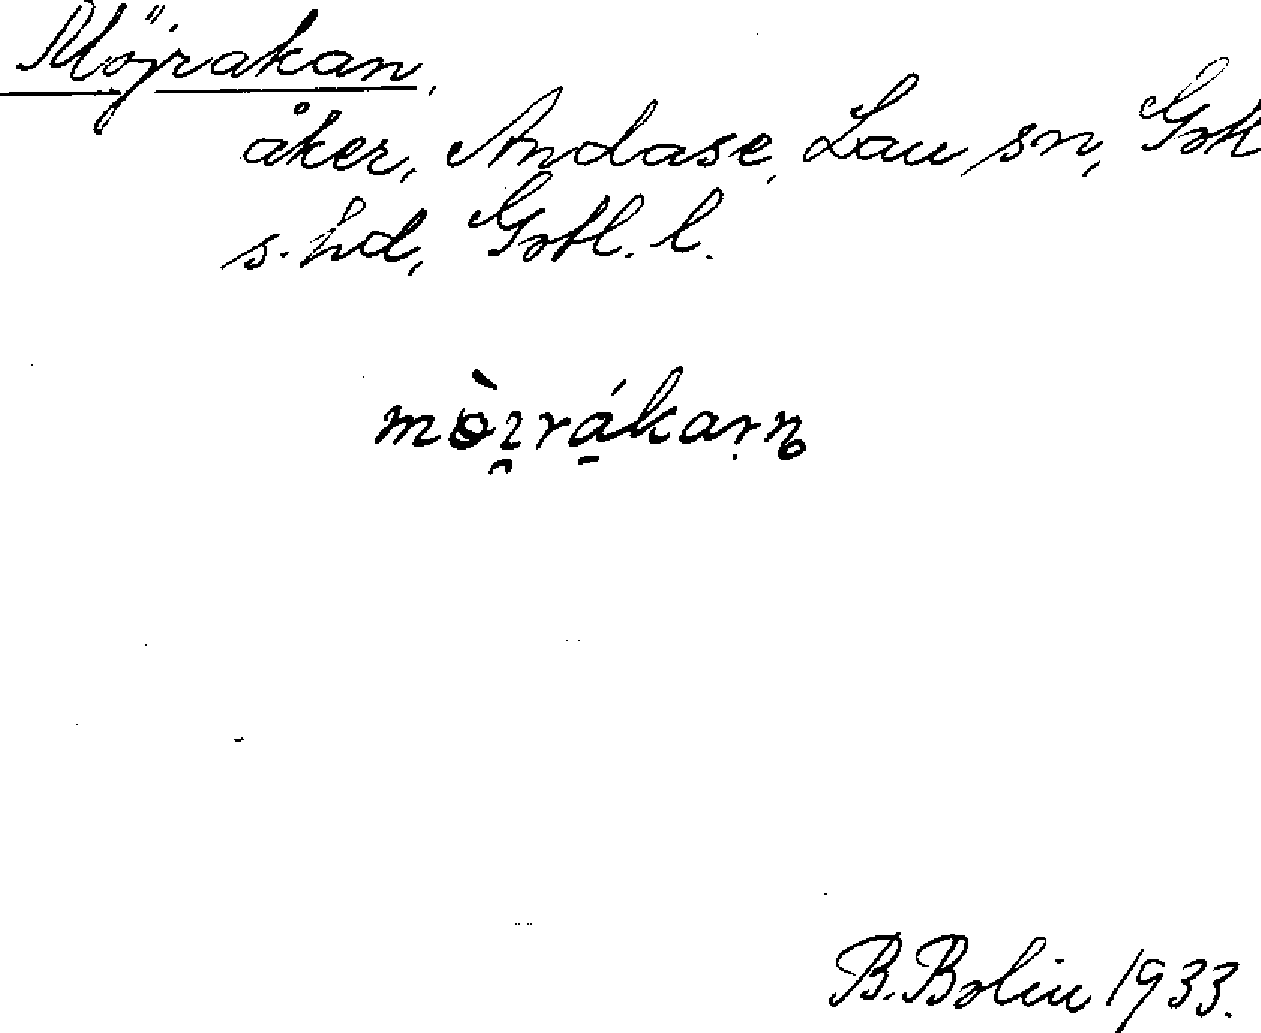 Möjrakan,
åker, Andase, Lau sn, Gotl
s. hd, Gotl. l.
mòi̯rá̱kaṛn
B. Bolin 1933.